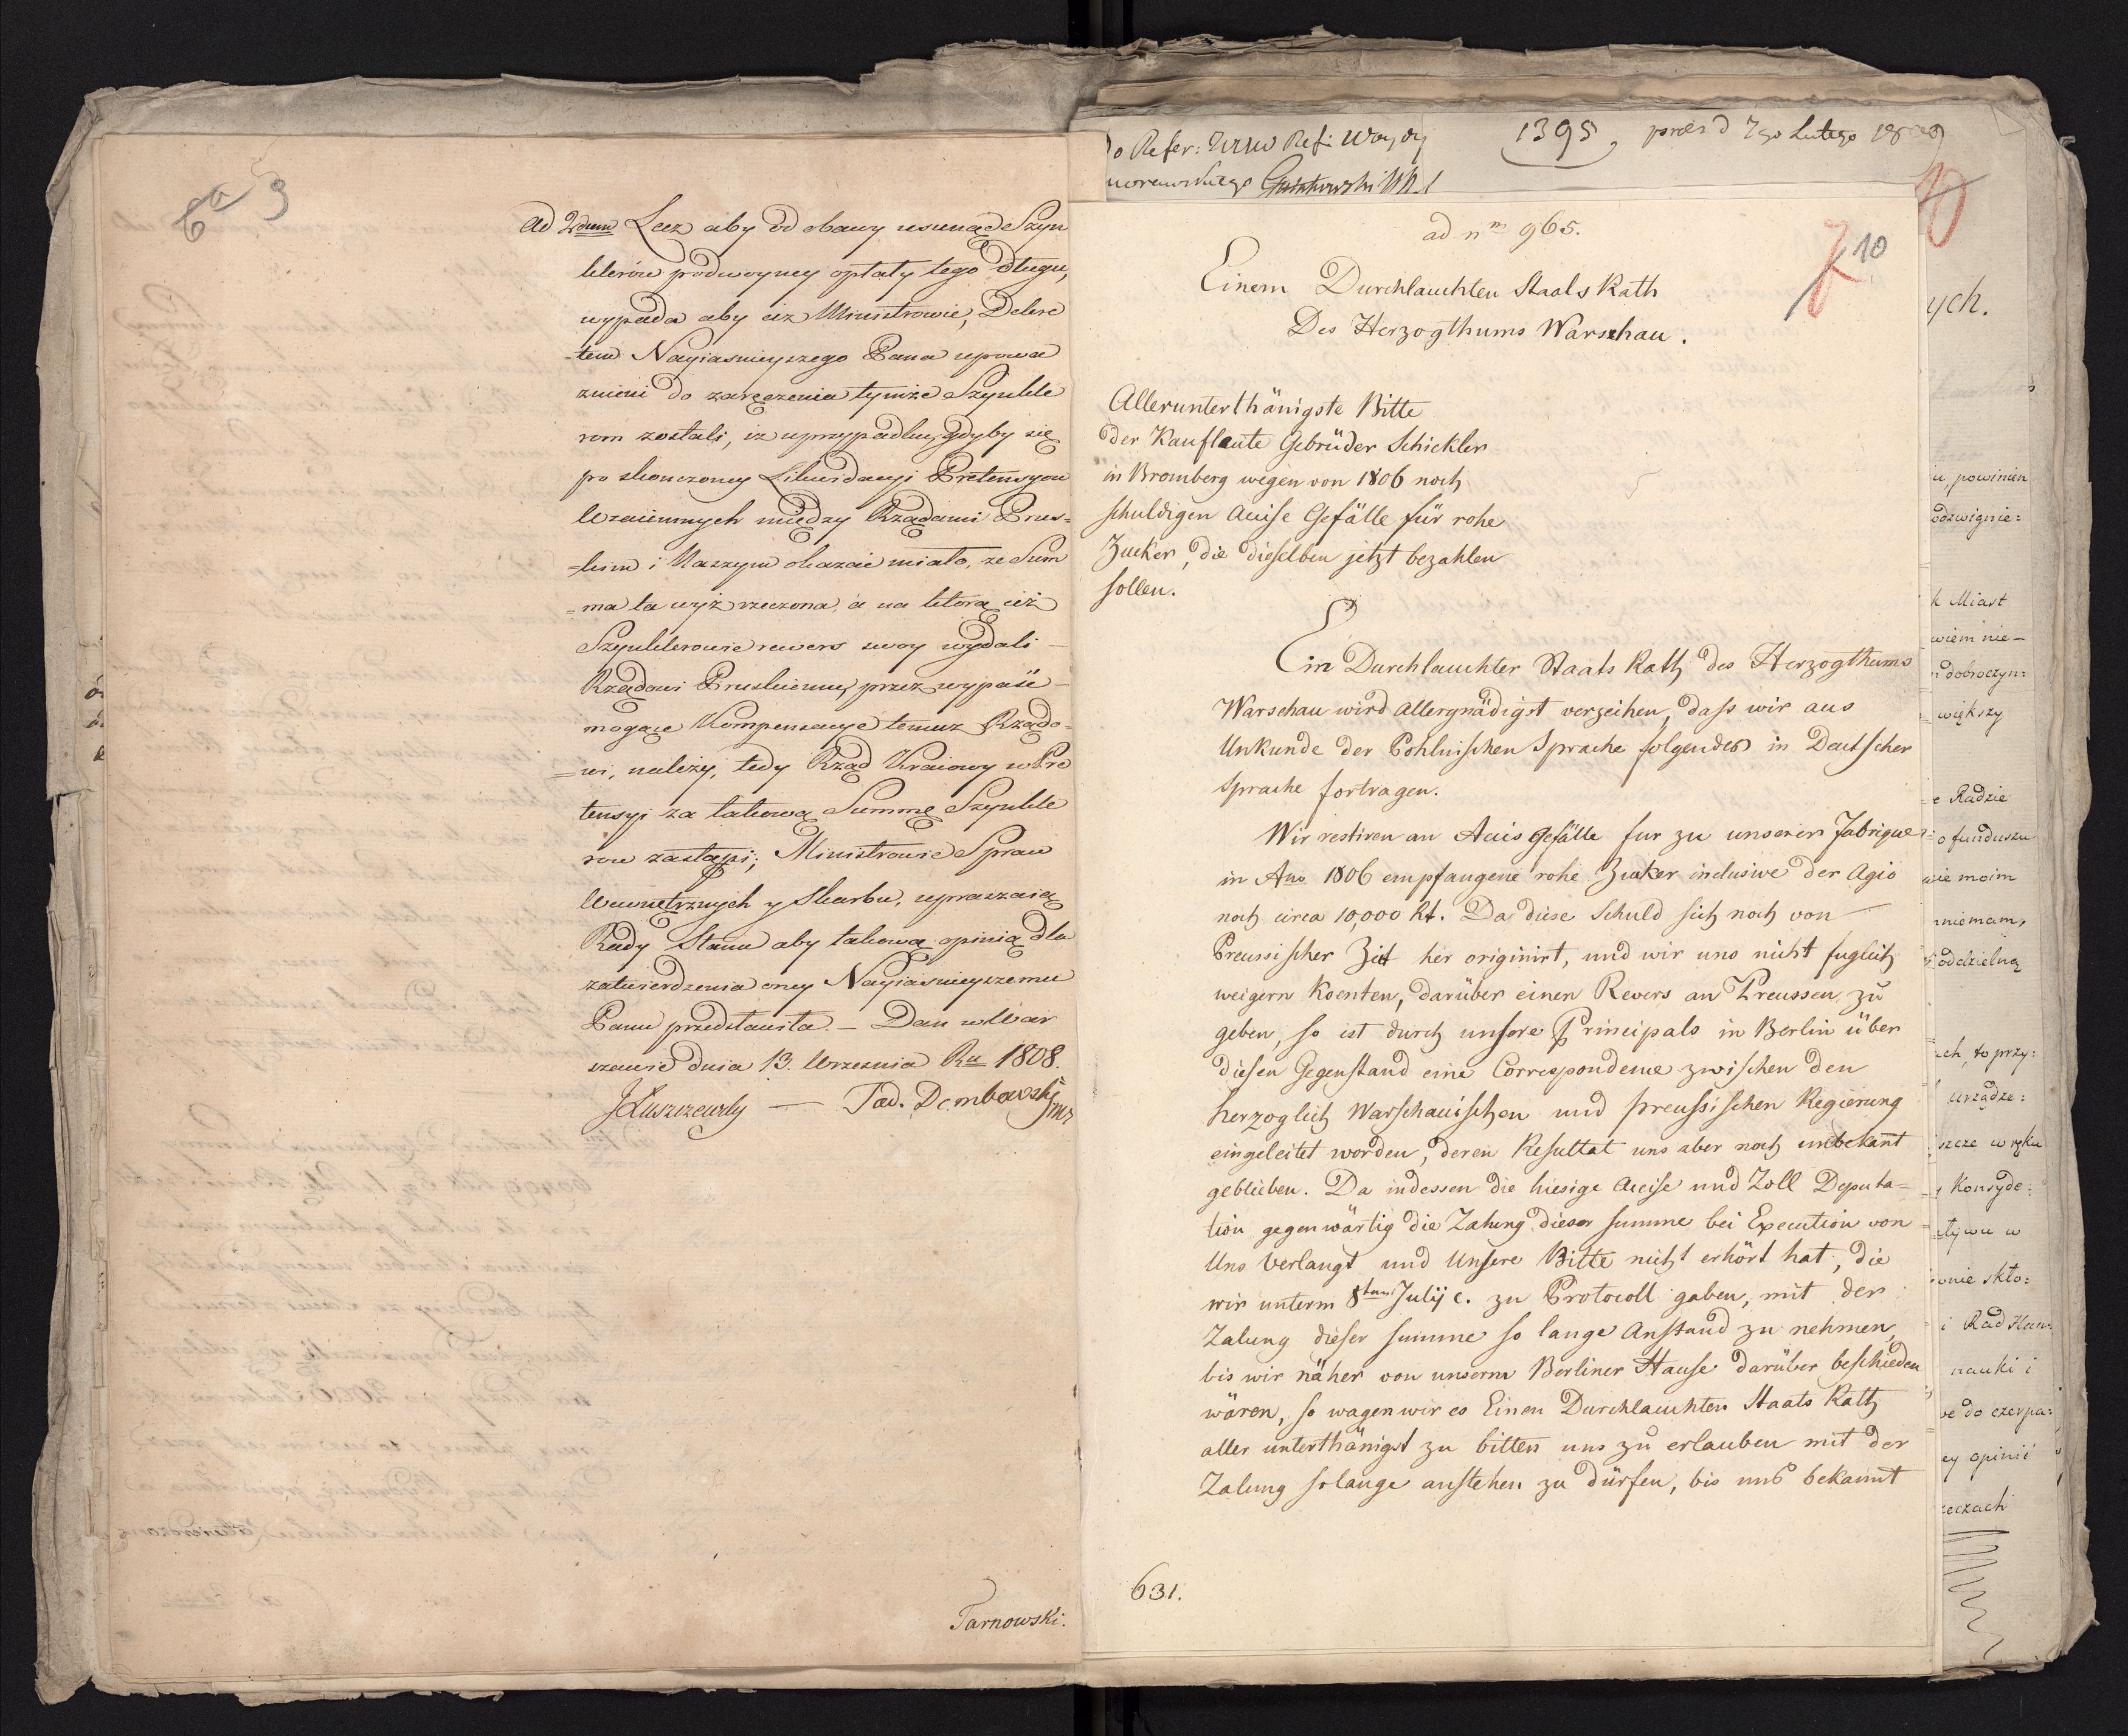 6a 9
Ad 2dum Lecz aby od obawy usunąć Szyn
klerów podwoyney opłaty tego długu,
wypada aby ciż Ministrowie, Dekre
=tem Nayiasnieyszego Pana upowa
znieni do zaręczenia tymże Szynkle
rom zostali, iz w przypadku, gdyby się
po skonczoney Likwidacyi Pretensyow
wzaiemnych między Rządami Prus=
=kim i Naszym okazać miało, ze Sum
=ma ta wyż rzeczona, a na ktorą ciż
Szynklerowie rewers swoy wydali –
Rządowi Pruskiemu, przez wypaść –
mogące Kompensacye temuz Rządo=
=wi, należy, tedy Rząd Kraiowy w Pre
tensyi za takową Summę Szynkle
row zastąpi; Ministrowie Spraw
Wewnętrznych y Skarbu, upraszaią
Rady Stanu aby takową opinią dla
zatwierdzenia oney Nayiasnieyszemu
Panu przedstawiła. – Dan w War
szawie dnia 13. Wrzesnia Ru 1808.
JŁuszczewsky — Tad. Dembowski
Tarnowski.
o Refer:
1395, praes d 7go Lutego 1809
ad nm 965.
7 10
Einem Durchlauchten Staats Rath
Des Herzogthums Warschau.
Allerunterthänigste Bitte
der Kaufleute Gebrüder Schickler
in Bromberg wegen von 1806 noch
schuldigen Accise Gefälle für rohe
Zucker, die dieselben jetzt bezahlen
sollen.
Ein Durchlauchter Staats Rath des Herzogthums
Warschau wird allergnädigst verzeihen, dass wir aus
Unkunde der Pohlnischen Sprache folgendes in Deutscher
Sprache fortragen.
Wir restiren an Accis Gefälle fur zu unserer Fabrique
in Ano 1806 empfangene rohe Zucker inclusive der Agio
noch circa 10,000 Rt. Da diese Schuld sich noch von
Preussischer Zeit her originirt, und wir uns nicht fuglich
weigern koenten, darüber einen Revers an Preussen zu
geben, so ist durch unsere Principals in Berlin über
diesen Gegenstand eine Correspondence zwischen den
herzoglich Warschauischen und preussischen Regierung
eingeleitet worden, deren Resultat uns aber noch unbekant
geblieben. Da indessen die hiesige Accise und Zoll Deputa=
tion gegenwärtig die Zahlung dieser Summe bei Execution von
Uns verlangt und Unsere Bitte nicht erhört hat, die
wir unterm 8ten Julij c. zu Protocoll gaben, mit der
Zalung dieser Summe so lange Anstand zu nehmen,
bis wir näher von unserm Berliner Hause darüber beschieden
wären, so wagen wir es Einen Durchlauchten Staats Rath
aller unterthänigst zu bitten uns zu erlauben mit der
Zalung solange anstehen zu dürfen, bis uns bekannt
631.
ych.
u, powinien
odzwignie:
k Miast
wiem nie–
dobroczyn:
większy
e Radzie
o funduszu
wie moim
niemam,
oddzielną
ach, to przy:
Urządze:
szcze w ręku
Konsyde:
tywu w
onie skło:
i Rad
nauki i
ve do czerpa:
ey opinii
zeczach